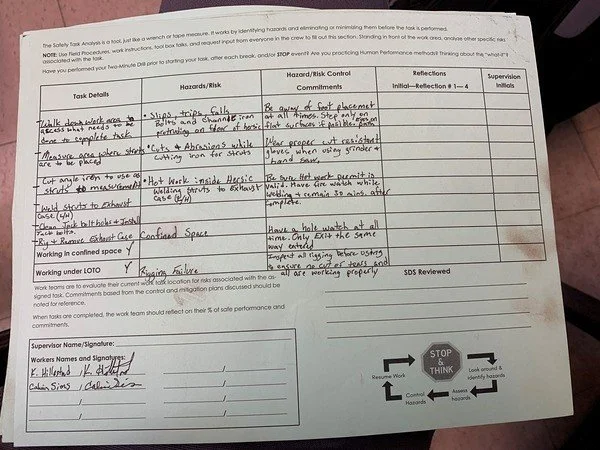 The Safety Task Analysis is a tool, just like a wrench or tape measure. It works by identifying hazards and eliminating or minimizing them before the task is performed.
NOTE: Use Field Procedures, work instructions, tool box talks, and request input from everyone in the crew to fill out this section. Standing in front of the work area, analyze other specific risks
associated with the task.
Have you performed your Two-Minute Drill prior to starting your task, after each break, and/or STOP event? Are you practicing Human Performance methods? Thinking about the "what-if"?
Task Details
Hazards/Risk
Hazard/Risk Control
Commitments
Reflections
Initial—Reflection # 1— 4
Supervision
Initials
- Walk down work area to
access what needs to be
done to complete task.
• Slips, trips, falls
Bolts and channel iron
protruding on floor of
Be away of foot placement
at all times. Step only on
flat surfaces if possible.
- Measure area where struts
are to be placed
• Cuts & Abrasions while
cutting iron for struts
Wear proper cut resistant
gloves when using grinder &
band saw.
- Cut angle iron to use as
struts to measurement
• Hot Work inside
Welding struts to exhaust
case
Be sure Hot work permit is
valid. Have fire watch while
welding & remain 30 mins. after
complete.
- Weld struts to Exhaust
Case (L/H)
- Clean Jack bolt holes & Install
Jack bolts.
- Rig & Remove Exhaust Case
Confined Space
Have a hole watch at all
time. Only Exit the same
way entered
Working in confined space Y
Working under LOTO Y
Rigging Failure
Inspect all rigging before using
to ensure no cut or tears and
all are working properly
Work teams are to evaluate their current work task location for risks associated with the as-
signed task. Commitments based from the control and mitigation plans discussed should be
noted for reference.
When tasks are completed, the work team should reflect on their % of safe performance and
commitments.
SDS Reviewed
Supervisor Name/Signature:
Workers Names and Signatures:
Calvin Sims / Calvin Sims
STOP
&
THINK
Look around &
identify hazards
Assess
hazards
Control
Hazards
Resume Work